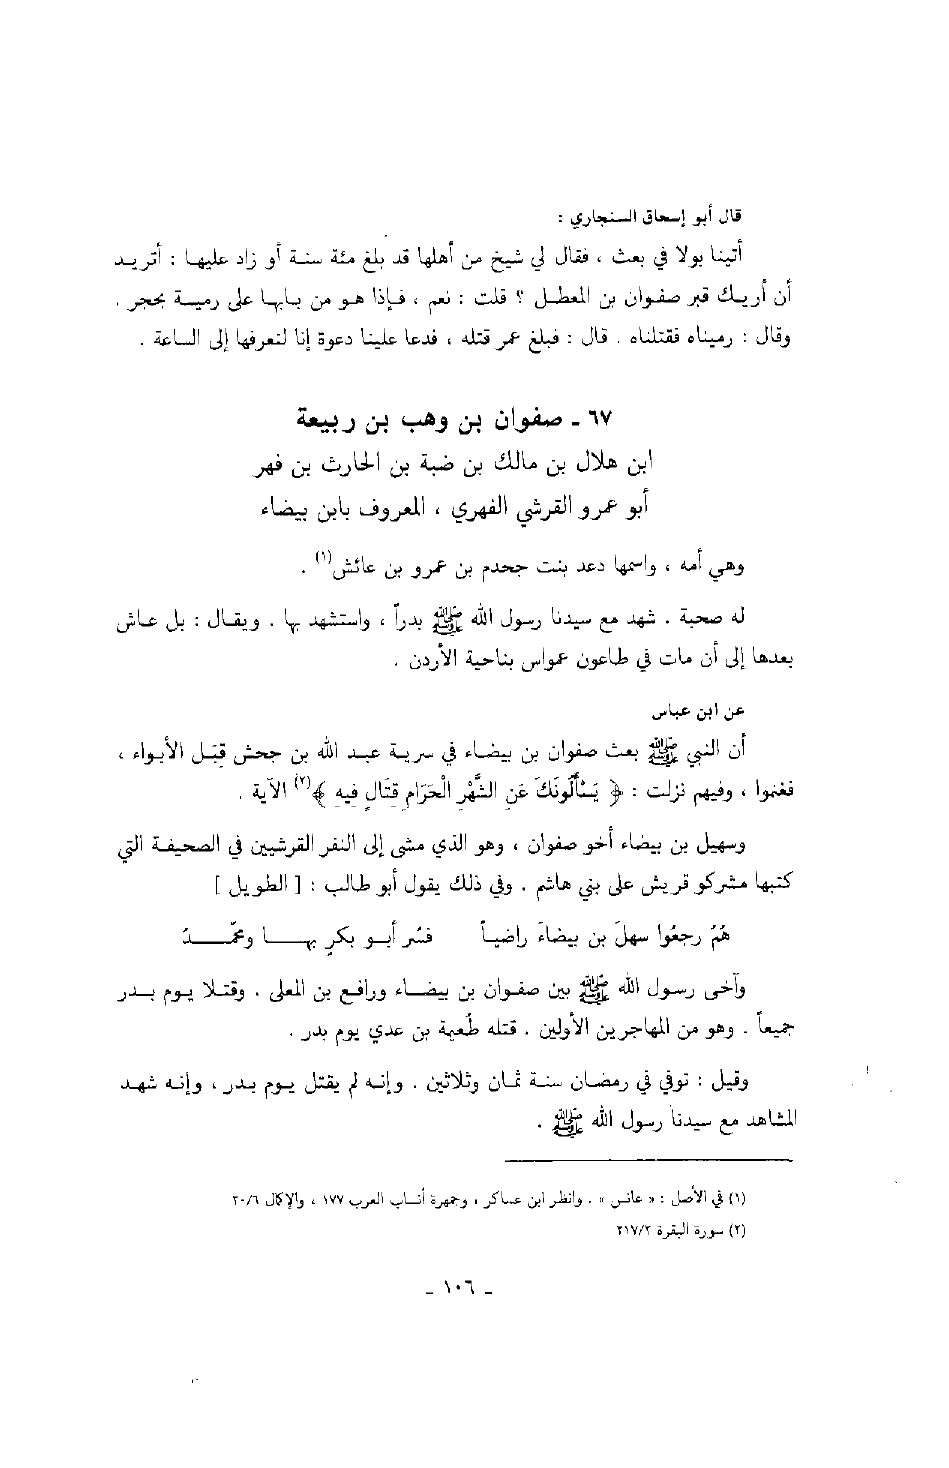 قال أبو إسحاق السنجاري :
أتينا بولا في بعث ، فقال لي شيخ من أهلها قد بلغ مئة سنة أو زاد عليها : أتريد
أن أريك قبر صفوان بن المعطل ؟ قلت : نعم ، فإذا هو من بابها على رمية بحجر .
وقال : رميناه فقتلناه . قال : فبلغ عمر قتله ، فدعا علينا دعوة إنا لنعرفها إلى الساعة .
٦٧ ـ صفوان بن وهب بن ربيعة
ابن هلال بن مالك بن ضبة بن الحارث بن فهر
أبو عمرو القرشي الفهري ، المعروف بابن بيضاء
وهي أمه ، واسمها دعد بنت جحدم بن عمرو بن عائش(١) .
له صحبة . شهد مع سيدنا رسول الله ﷺ بدراً ، واستشهد بها . ويقال : بل عاش
بعدها إلى أن مات في طاعون عمواس بناحية الأردن .
عن ابن عباس
أن النبي ﷺ بعث صفوان بن بيضاء في سرية عبد الله بن جحش قِبَل الأبواء ،
فغنموا ، وفيهم نزلت : ﴿ يَسْأَلُونَكَ عَنِ الشَّهْرِ الْحَرَامِ قِتَالٍ فِيهِ ﴾(٢) الآية .
وسهيل بن بيضاء أخو صفوان ، وهو الذي مشى إلى النفر القرشيين في الصحيفة التي
كتبها مشركو قريش على بني هاشم . وفي ذلك يقول أبو طالب : [ الطويل ]
هُمُ رجعُوا سهلَ بن بيضاءَ راضياً فسُر أبو بكرٍ بها ومحمّدُ
وآخى رسول الله ﷺ بين صفوان بن بيضاء ورافع بن المعلى . وقتلا يوم بدر
جميعاً . وهو من المهاجرين الأولين . قتله طُعيمة بن عدي يوم بدر .
وقيل : توفي في رمضان سنة ثمان وثلاثين . وإنه لم يقتل يوم بدر ، وإنه شهد
المشاهد مع سيدنا رسول الله ﷺ .
(١) في الأصل : « عانس » . وانظر ابن عساكر ، وجمهرة أنساب العرب ١٧٧ ، والإكمال ٢٠/٦
(٢) سورة البقرة ٢١٧/٢
ـ ١٠٦ ـ